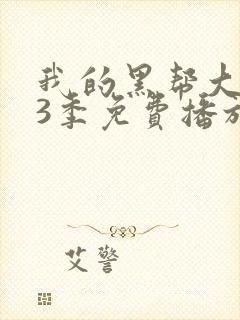 我的黑帮大
3季免费播放
艾警